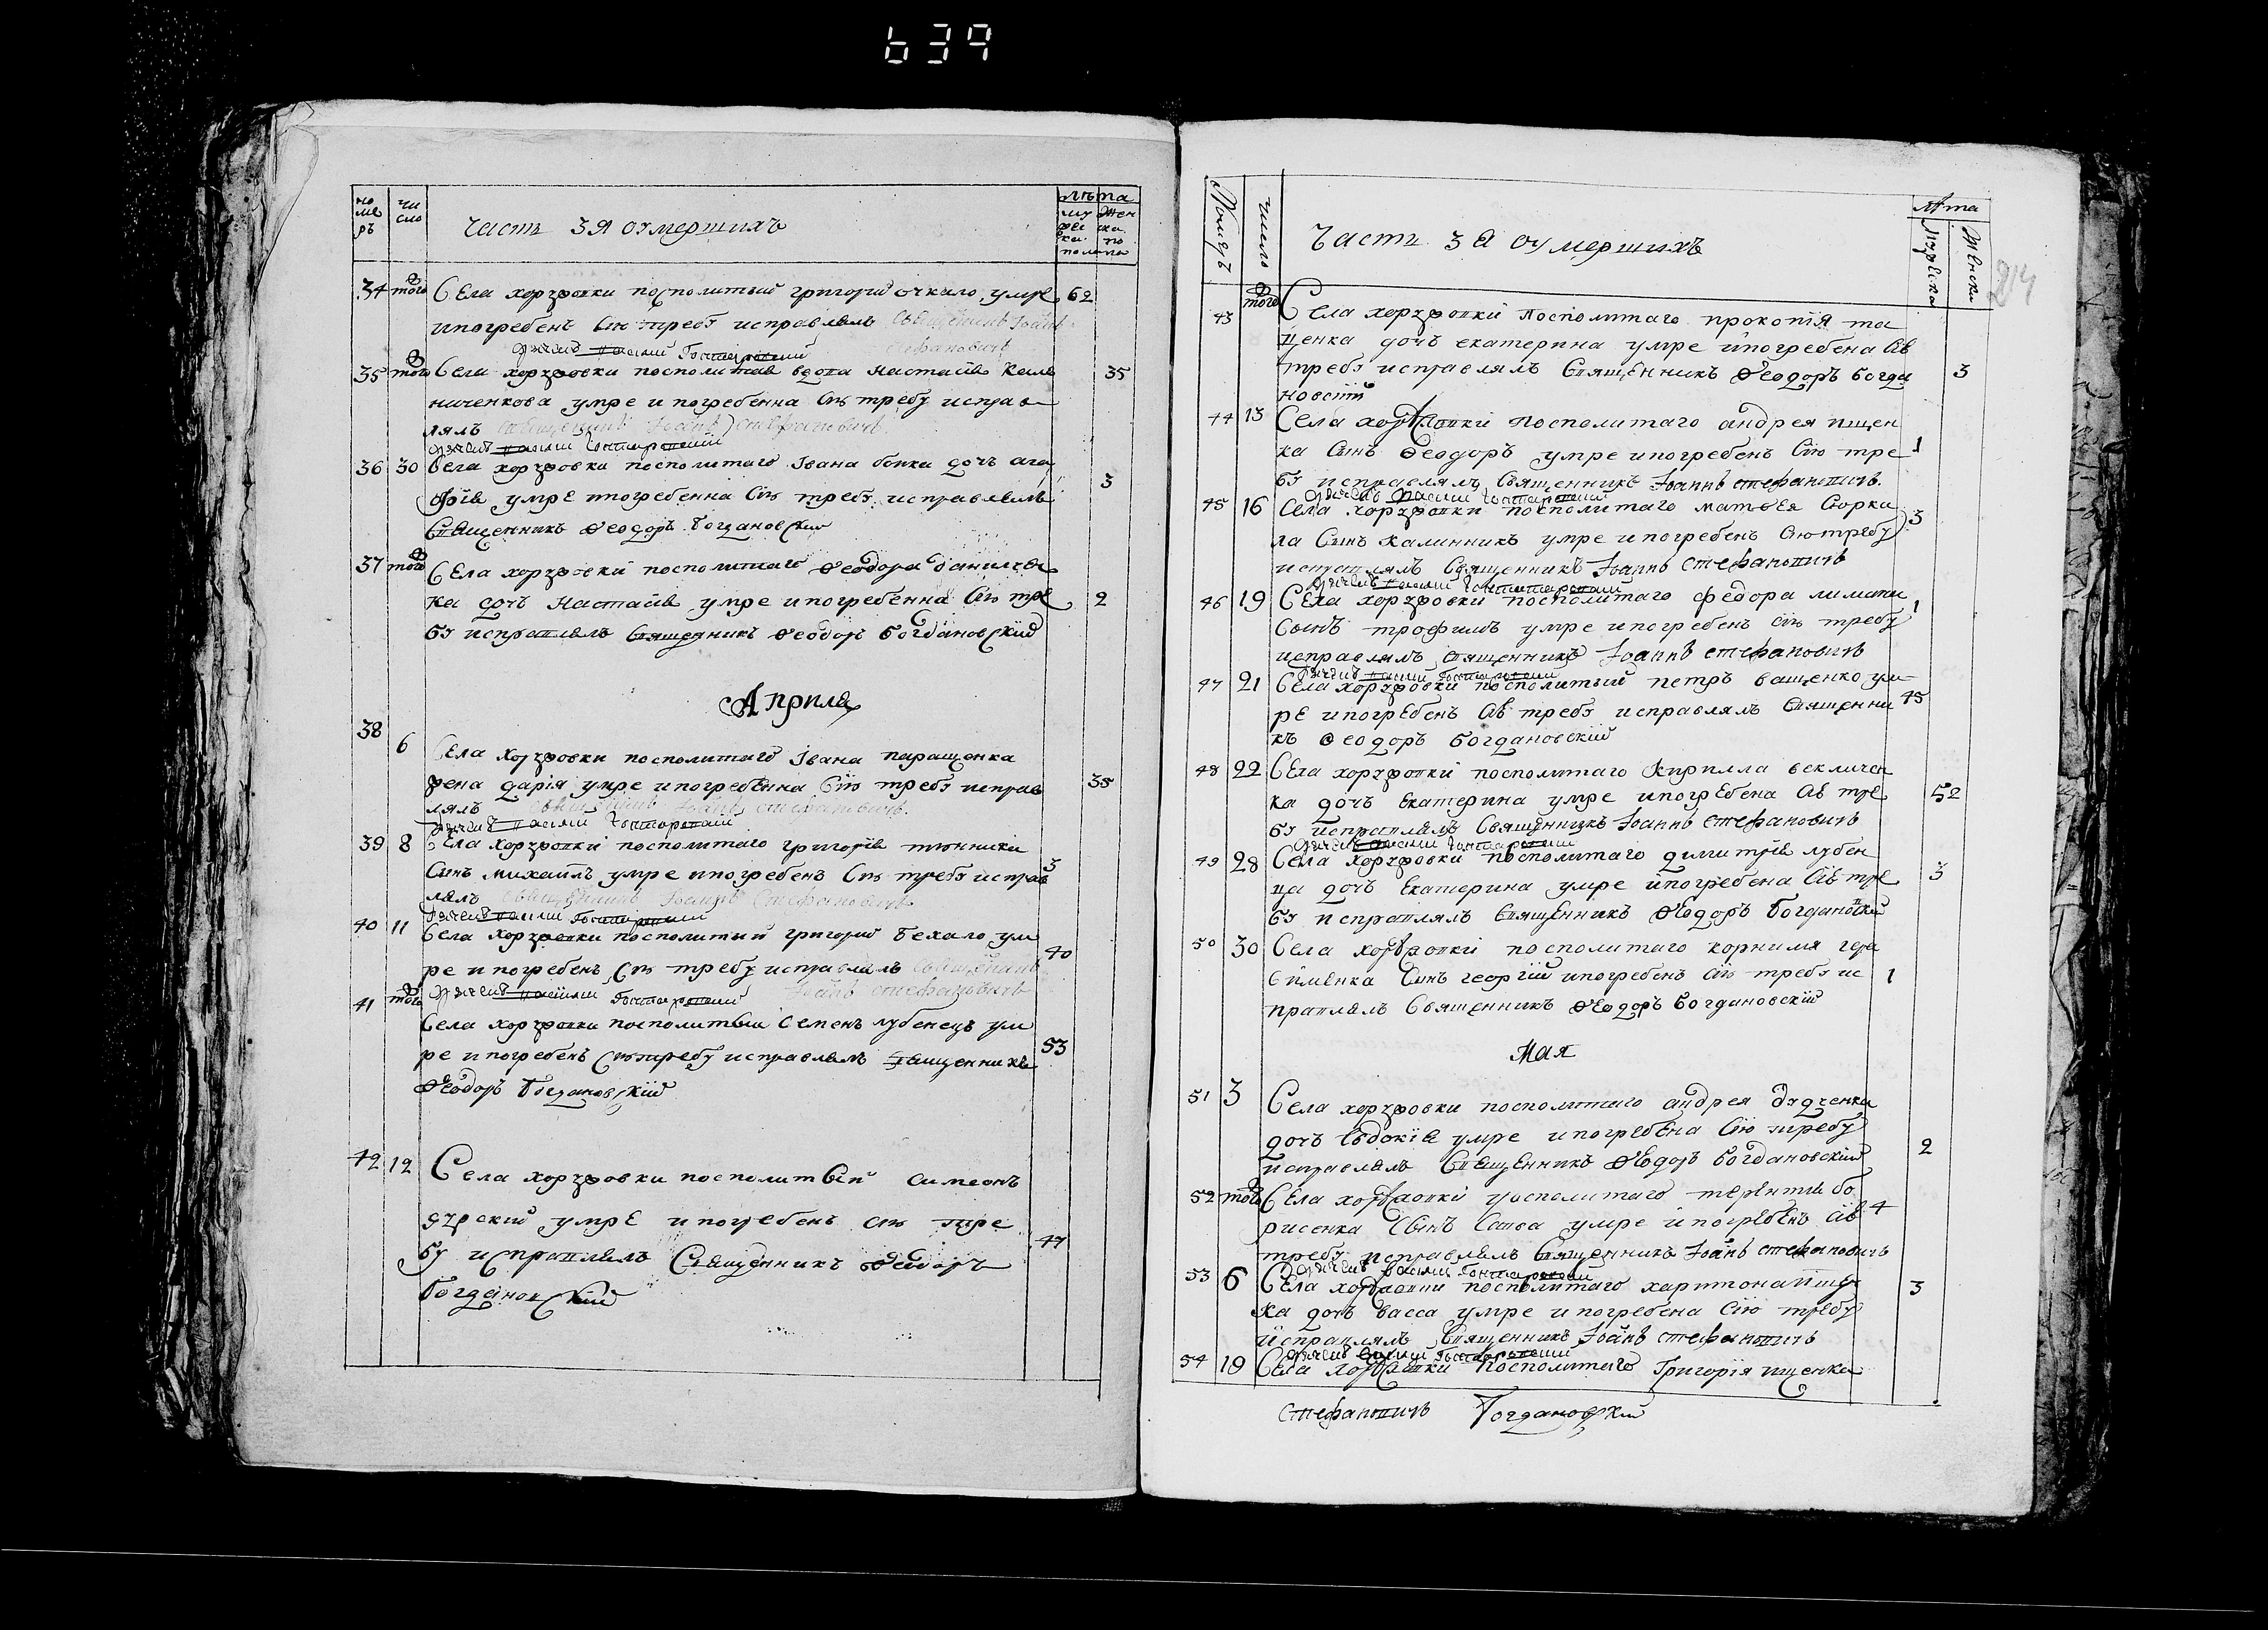 639
но
ме
ръ
чи
сло
часть 3я оумершихъ
лѣта
му
жен
ска
по
34 того Села хорҙовки посполитый григорий очкало умре 62
и погребенъ сию требу исправлялъ Священникъ Іоаннъ
Стефановичъ
35 того Села хорҙовки посполитая вдова настасія
ниченкова умре и погребенна сию требу исправ
лялъ священникъ Іоаннъ Стефановичъ 35
36 30 Села хорҙовки посполитаго Івана бойка дочъ ага
фія умре и погребенна сию требу исправлялъ 3
Священникъ Ѳеодоръ Богдановский
37 того Села хорҙовки посполитаго Ѳеодора данилчен
ка дочъ Настасія умре и погребенна сию тре 2
бу исправлялъ Священникъ Ѳеодоръ Богдановскій
Априля
38 6 Села хорҙовки посполитаго Івана паращенка
жена дарія умре и погребенна Сію требу исправ 35
лялъ священникъ Іоаннъ стефановичъ
39 8 Села хорҙовкі посполитаго григорія
Синъ михаилъ умре и погребенъ Сию требу исправ 3
лялъ Священникъ Іоаннъ Стефановичъ
40 11 Села хорҙовки посполитый григорий бехало ум
ре и погребенъ Сию требу исправлялъ Священникъ 40
Іоаннъ стефановичъ
41 того Села хорҙовки посполитый Семенъ лубенецъ ум
ре и погребенъ Сию требу исправлялъ Священникъ 53
Ѳеодоръ Богдановскій
42 12 Села хорҙовки посполитый Симеонъ
умре и погребенъ сию тре
бу исправлялъ Священникъ Ѳеодоръ 47
Богдановскій
Номеръ
число
Часть 3я оумершихъ
лѣта
Мужеска
Женска
214
43 того Села хорҙовки посполитаго прокопія та
щенка дочъ екатерина умре и погребена сію
требу исправлялъ Священникъ Ѳеодоръ богда 3
новскій
44 13 Села хорҙовкі посполитаго андрея ищен
ка Сынъ Ѳеодоръ умре и погребенъ Сию тре 1
бу исправлялъ Священникъ Іоаннъ стефановичъ.
45 16 Села хорҙовки посполитаго матѳея Сюрки
ла Сынъ Калинникъ умре и погребенъ Сию требу 3
исправлялъ Священникъ Іоаннъ Стефановичъ
46 19 Села хорҙовки посполитаго федора
Сынъ трофимъ умре и погребенъ сію требу 1
исправлялъ священникъ Іоаннъ Стефановичъ
47 21 Села хорҙовки посполитый петръ ващенко ум
ре и погребенъ сію требу исправлялъ Священни 45
къ Ѳеодоръ Богдановскій
48 22 Села хорҙовкі посполитаго Кирилла векличен
ка дочъ Екатерина умре и погребена сію тре 52
бу исправлялъ Священникъ Іоаннъ Стефановичъ
49 28 Села хорҙовки посполитаго димитрія лубен
ца дочъ Екатерина умре и погребена сію тре 3
бу исправлялъ Священникъ Ѳеодоръ Богдановскій
50 30 Села хорҙовкі посполитаго корнилія гера
сименка Синъ георгій и погребенъ сію требу ис 1
правлялъ Священникъ Ѳеодоръ Богдановскій
Мая
51 3 Села хорҙовки посполитаго андрея дядченка
дочъ Евдокія умре и погребена Сію требу
исправлялъ Священникъ Ѳеодоръ Богдановскій 2
52 того Села хорҙовкі посполитаго терентія бо
рисенка Сынъ Савва умре и погребенъ сію 4
требу исправлялъ Священникъ Іоаннъ стефановичъ
53 6 Села хорҙовки посполитаго харитона
ка дочъ васса умре и погребена Сію требу 3
исправлялъ Священникъ Іоаннъ стефановичъ
54 10 Села хорҙовки посполитаго Григорія ищенка
Стефановичъ Богдановский